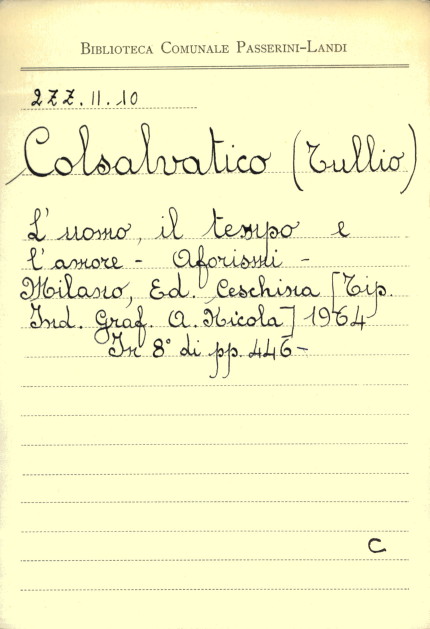 BIBLIOTECA COMUNALE PASSERINI-LANDI
2ZZ.11.10
Colsalvatico (Tullio)
L'uomo, il tempo e
l'amore - Aforismi -
Milano, Ed. Ceschina [Tip.
Ind. Graf. A. Nicola] 1964
In 8° di pp. 446-
C